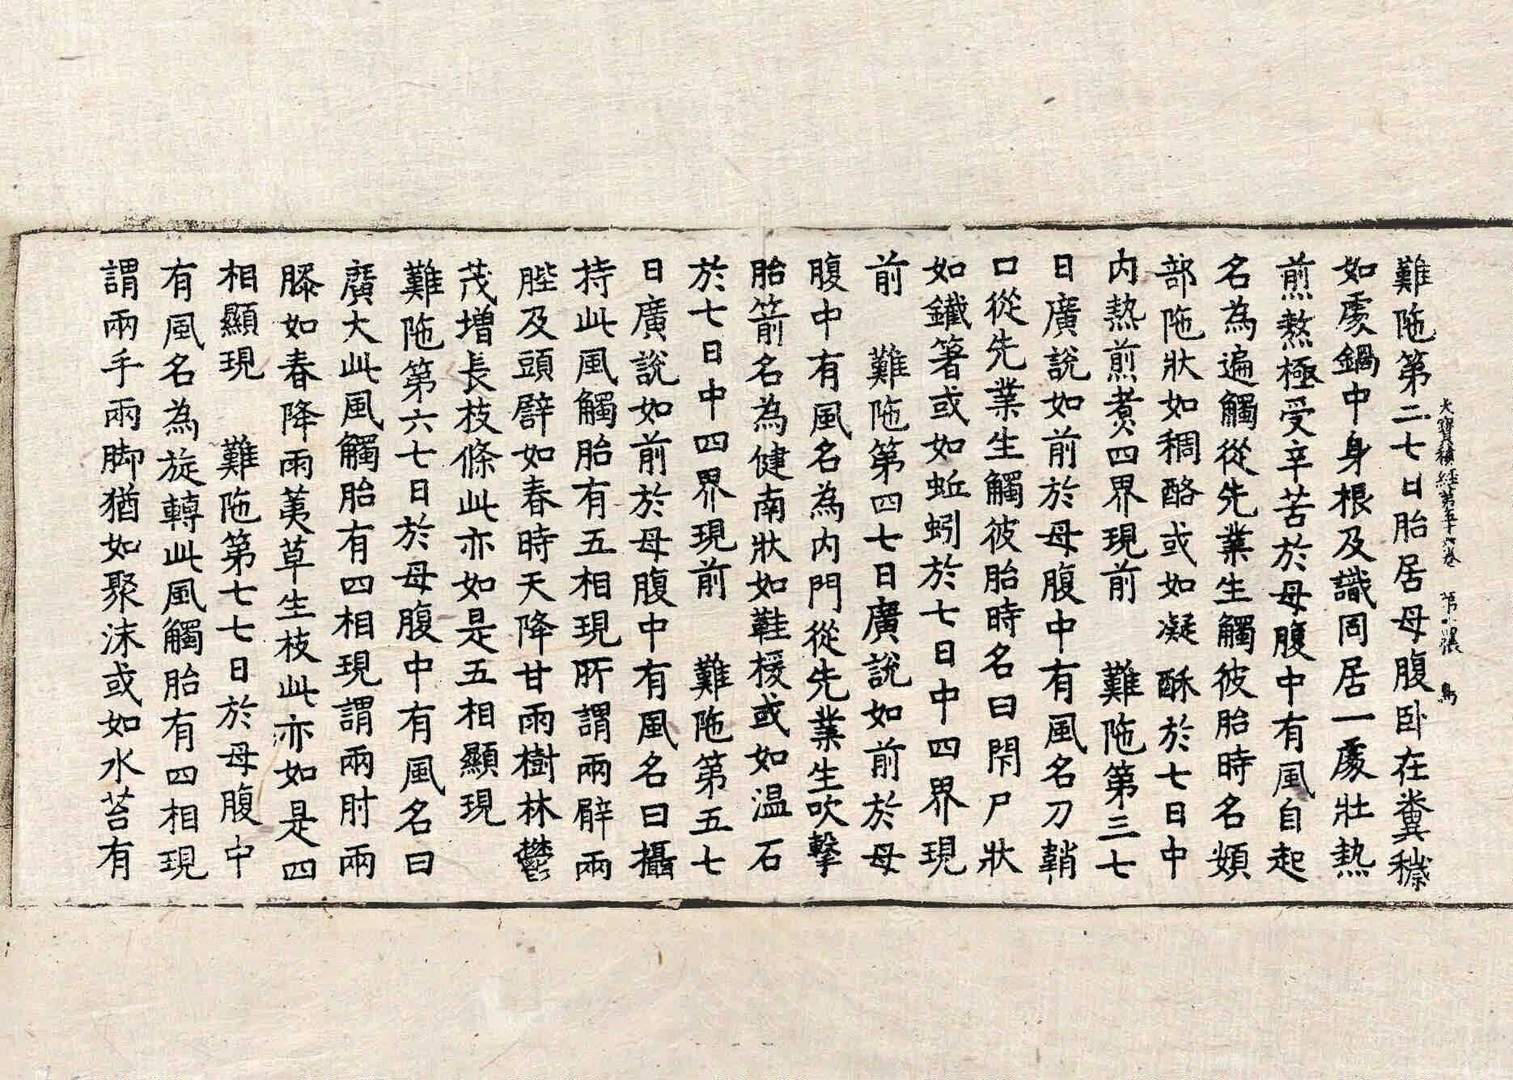 大寶積經第五十六卷 第八張 鳥
難陁第二七日胎居母腹卧在糞穢
如處鍋中身根及識同居一處壯熱
煎熬極受辛苦於母腹中有風自起
名為遍觸從先業生觸彼胎時名頞
部陁狀如稠酪或如凝酥於七日中
内熱煎煑四界現前 難陁第三七
日廣說如前於母腹中有風名刀鞘
口從先業生觸彼胎時名曰閇尸狀
如鐵箸或如蚯蚓於七日中四界現
前 難陁第四七日廣說如前於母
腹中有風名為内門從先業生吹擊
胎箭名為健南狀如鞋楥或如温石
於七日中四界現前 難陁第五七
日廣說如前於母腹中有風名曰攝
持此風觸胎有五相現所謂兩臂兩
䏶及頭譬如春時天降甘雨樹林鬱
茂增長枝條此亦如是五相顯現
難陁第六七日於母腹中有風名曰
廣大此風觸胎有四相現謂兩肘兩
膝如春降雨荑草生枝此亦如是四
相顯現 難陁第七七日於母腹中
有風名為旋轉此風觸胎有四相現
謂兩手兩脚猶如聚沫或如水苔有